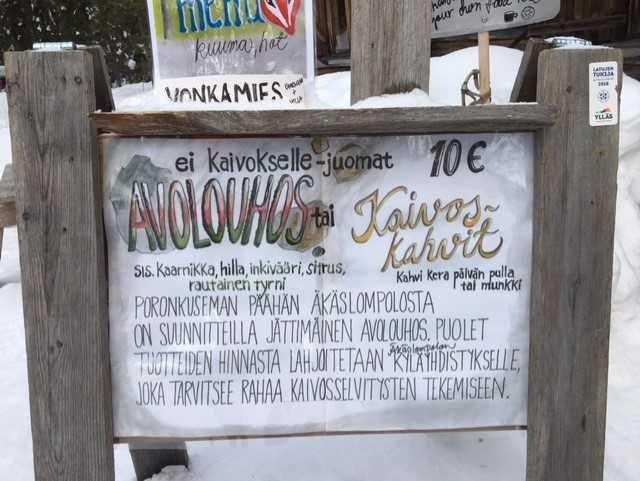 menu
kuuma, hot
VONKAMIES
your own food
LATUJEN
TUKIJA
2018
YLLÄS
ei kaivokselle-juomat 10€
AVOLOUHOS tai Kaivos-
kahvit
sis. kaarnikka, hilla, inkivääri, sitrus,
rautainen tyrni
Kahvi kera päivän pulla
tai munkki
PORONKUSEMAN PÄÄHÄN ÄKÄSLOMPOLOSTA
ON SUUNNITTEILLA JÄTTIMÄINEN AVOLOUHOS. PUOLET
TUOTTEIDEN HINNASTA LAHJOITETAAN Äkäslompolon KYLÄYHDISTYKSELLE,
JOKA TARVITSEE RAHAA KAIVOSSELVITYSTEN TEKEMISEEN.